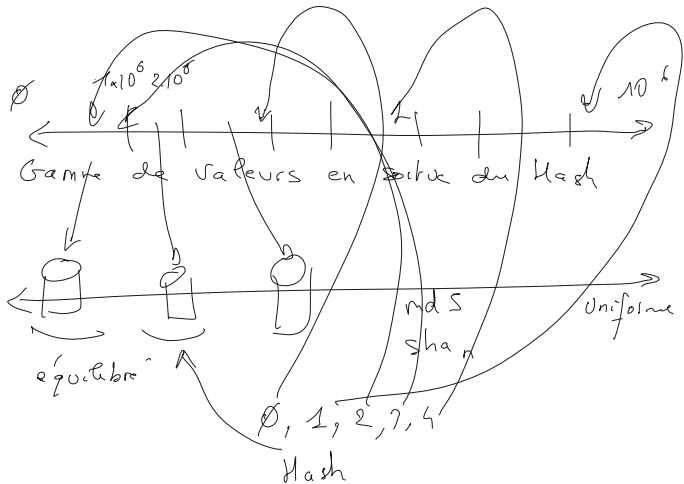 1x10⁶ 2.10⁶
Ø 10⁶
Gamme de valeurs en sortie du Hash
md5 Uniforme
sha n
équilibré
Ø, 1, 2, 3, 4
Hash